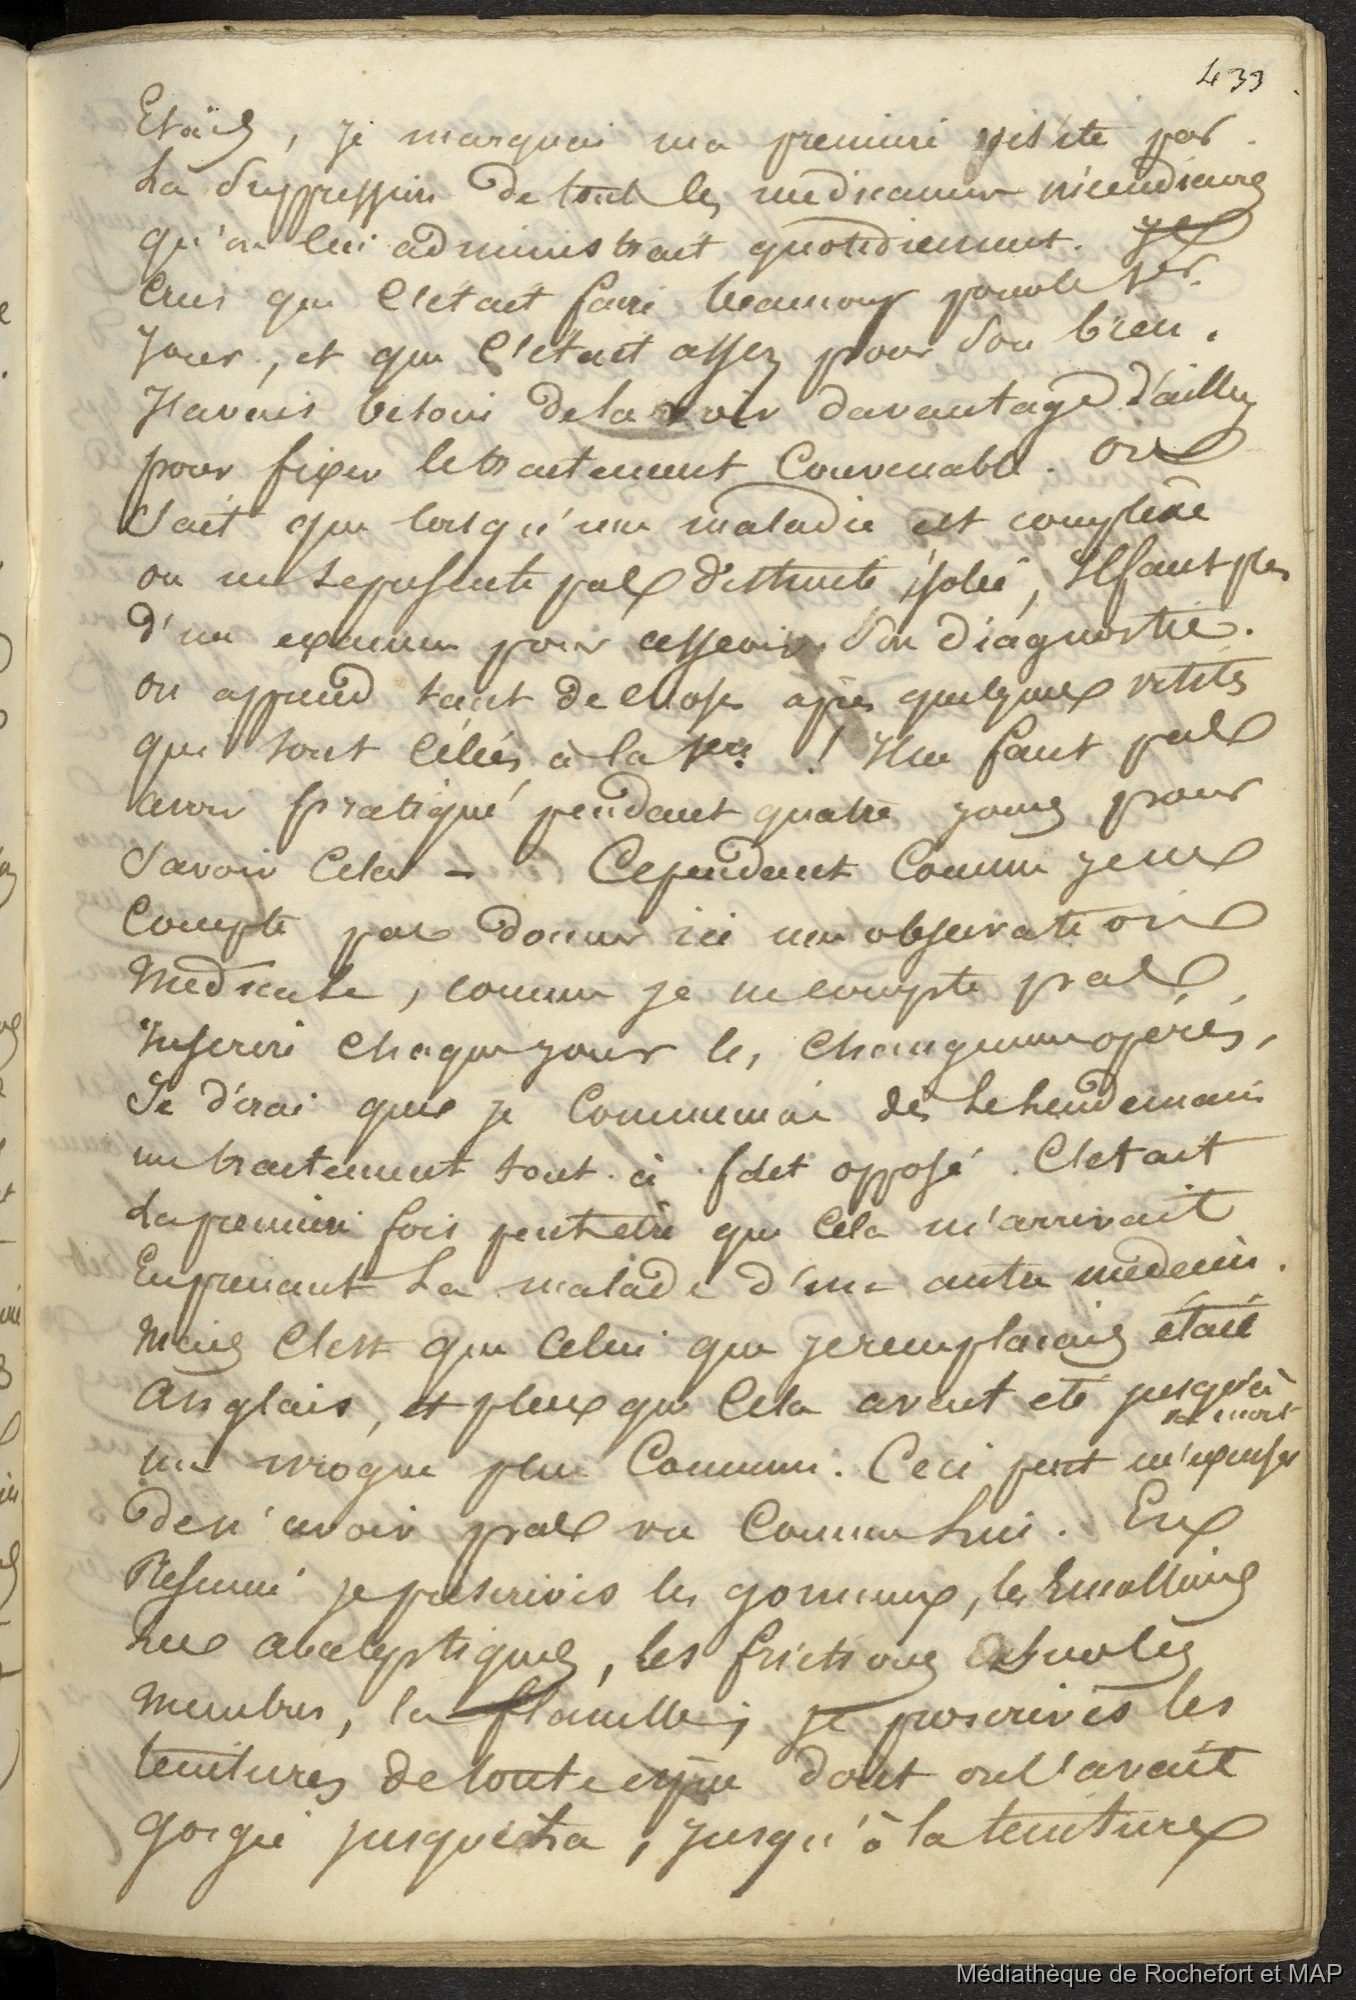 433
Etais, je marquai ma premiere visite par
La Suppression de tout les medicamens incendiaires
qu'on lui administrait quotidiennement. Je
Crus que C'était faire beaucoup pour le 1er.
Jour, et que C'était assez pour Son bien.
J'avais besoin de la voir davantage d'aille
pour fixer le traitement Convenable. On
Sait que lorsqu'une maladie est complexe
ou ne se presente pas distincte isolée, Il faut plus
d'un examen pour asseoir Son diagnostic.
on apprend tant de choses après quelques visites
qui sont Celées à la 1ere ! Il ne faut pas
avoir pratiqué pendant quatre jours pour
Savoir Cela – Cependant Comme je ne
Compte pas donner ici une observation
Medicale, comme je ne compte pas
Inscrire Chaque jour les Changemens opérés,
Je dirai que je Commencai dès Le Lendemain
un traitement tout à fait opposé. C'etait
La premiere fois peut etre que Cela m'arrivait
En prenant La malade d'un autre médecin.
Mais C'est que Celui que je remplacais était
Anglais, et plus que Cela avait eté jusqu'à
sa mort
un ivrogne peu Commun. Ceci peut m'excuser
de n'avoir pas vu Comme Lui. En
Resumé je prescrivis les gommeux, les Emolliens
Les analeptiques, les frictions sur les
Membres, la flanelle; je proscrivis les
teintures de toute espèce dont on l'avait
gorgée jusque La, jusqu'à la teinture
Médiathèque de Rochefort et MAP